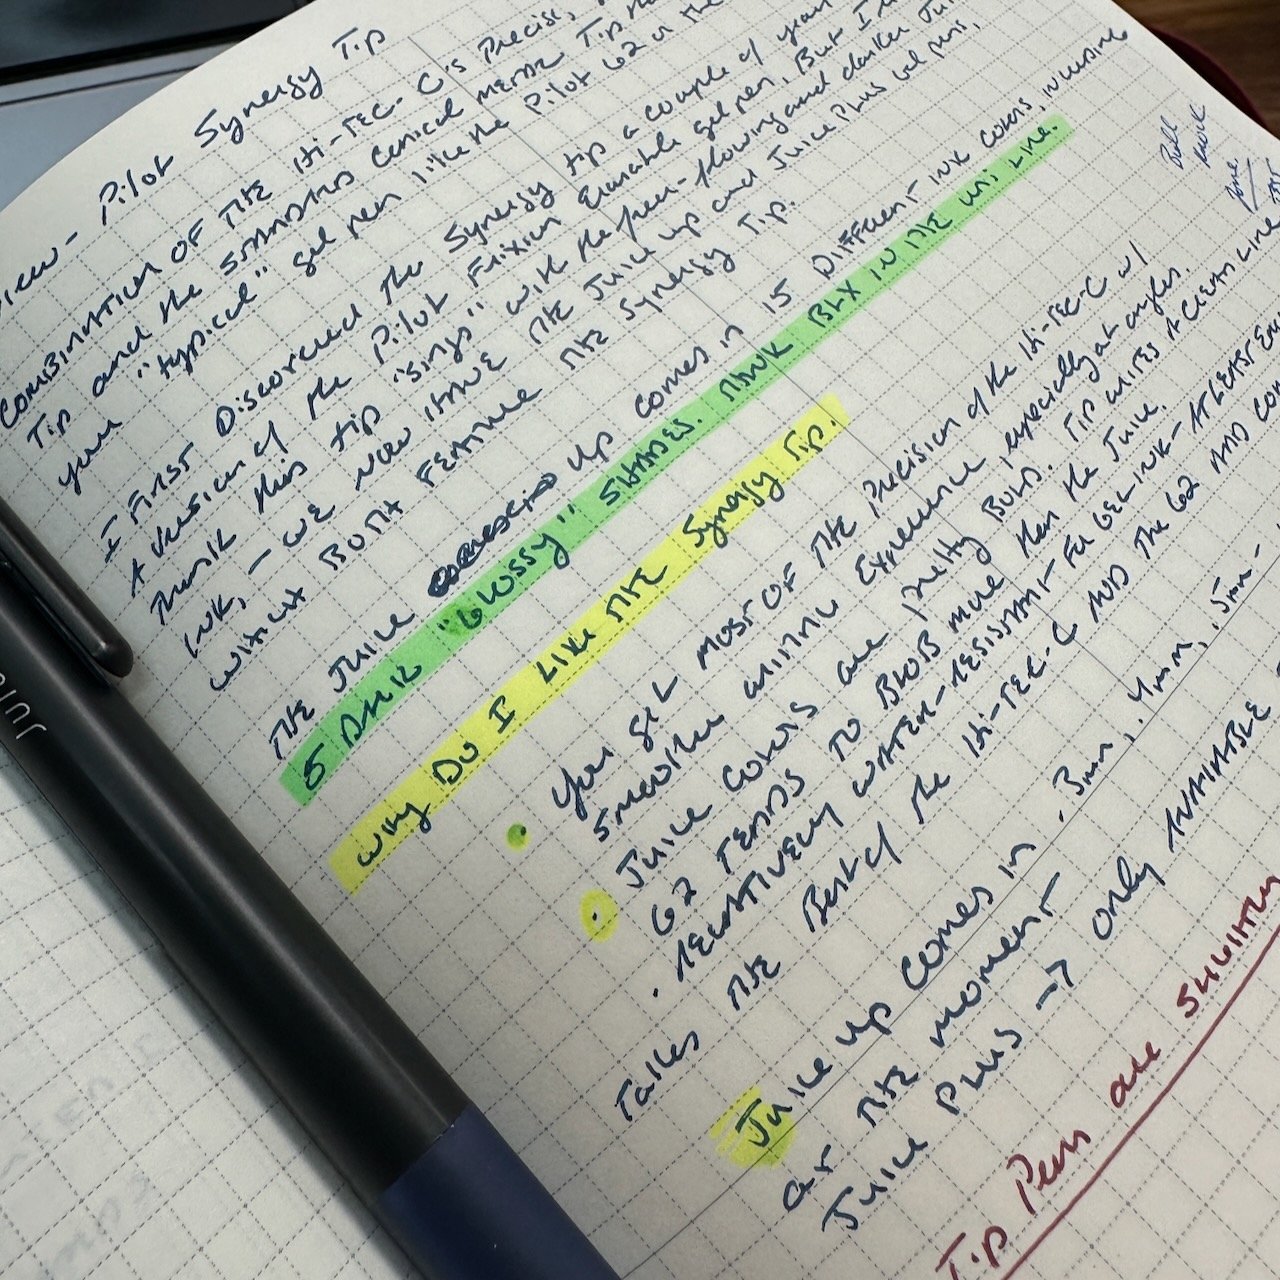 Pilot Synergy Tip
Combination of the Hi-TEC-C is Precise,
Tip and the standard conical metal Tip
you "typical" gel pen like the Pilot G2 or the
I First Discovered the Synergy tip a couple of years
A version of the Pilot Frixion Erasable gel pen. But I
think this tip "sings" with the free-flowing and darker
ink, - we now have the Juice up and Juice Plus gel pens,
which Both Feature the Synergy Tip.
The Juice Up comes in 15 Different ink colors, including
5 Dark "Glossy" shades. Think BLX in the Uni Line.
Why Do I Like the Synergy Tip.
• You get most of the Precision of the Hi-TEC-C w/
smoother writing Experience, especially at angles
• Juice colors are pretty Bold. Tip writes A clean line
G2 Tends to Blob more then the Juice.
• relatively water-resistant for Gel ink - At Least
Takes the Best of the Hi-TEC-C AND The G2 AND
Juice up comes in .3mm, .4mm, .5mm -
at the moment
Juice Plus → only Available
Tip Pens are slightly
JUI